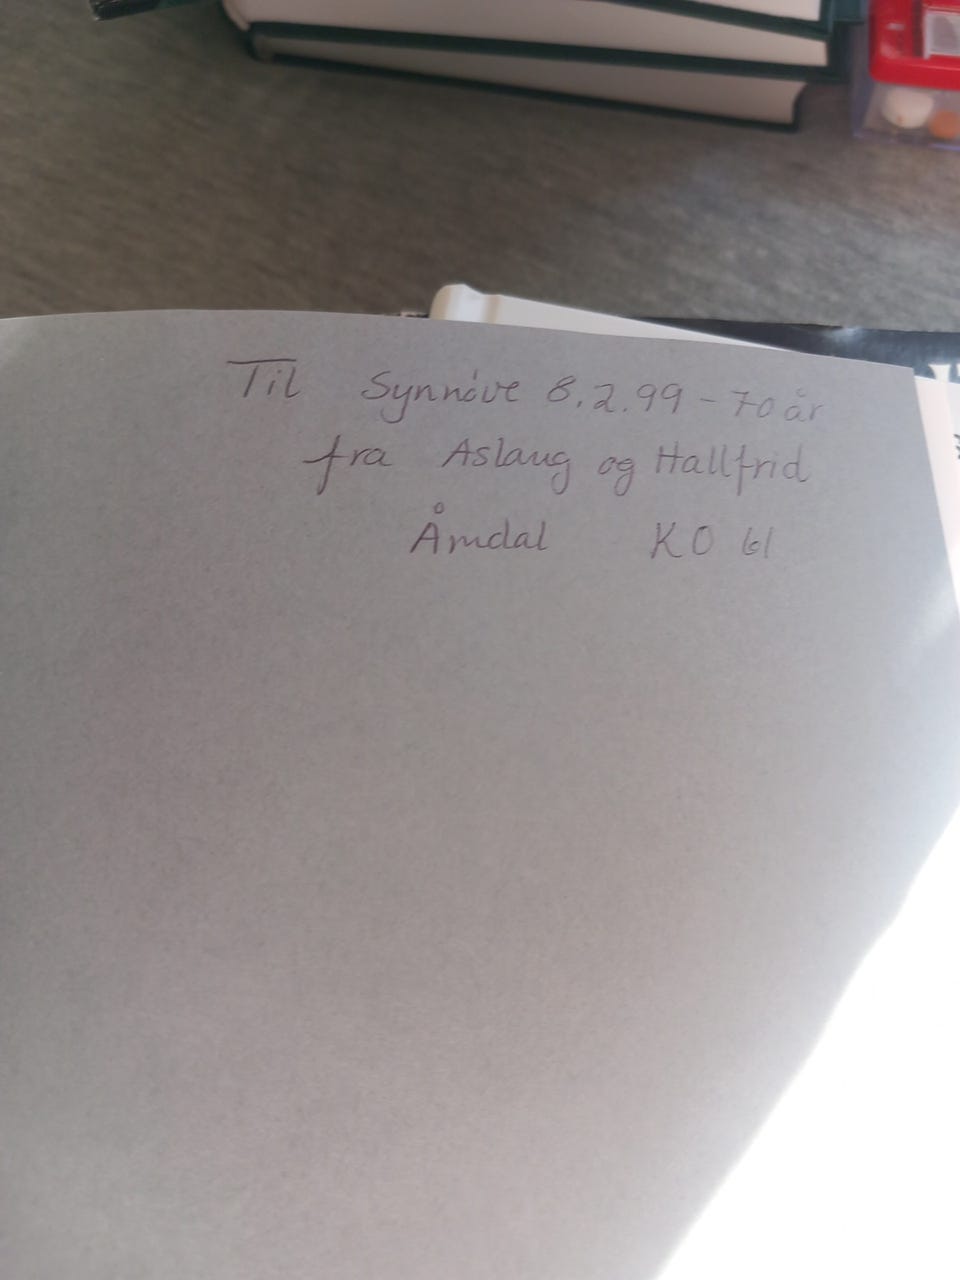 Til Synnóve 8.2.99 - 70 år
fra Aslaug og Hallfrid
Åmdal KO 61